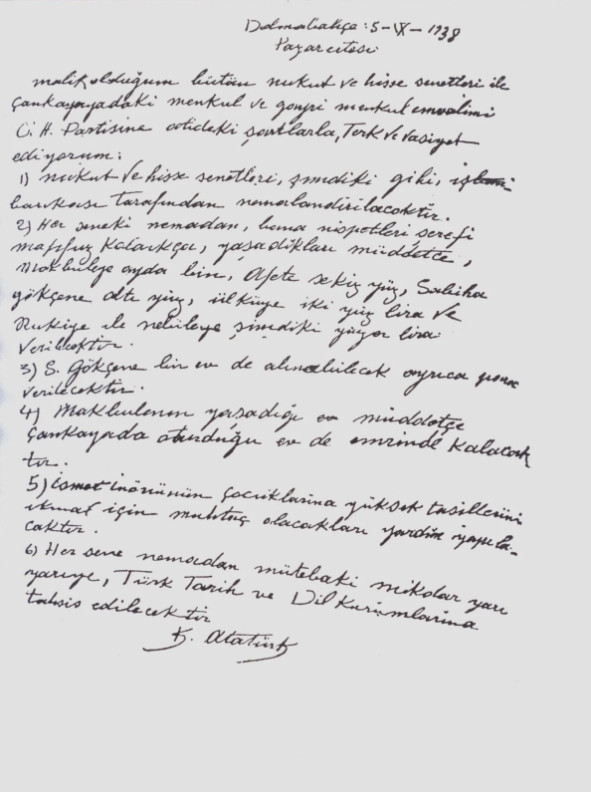 Dolmabahçe: 5-IX-1938
Pazarertesi
malik olduğum bütün nukut ve hisse senetleri ile
Çankayayadaki menkul ve gayri menkul emvalimi
C. H. Partisine atideki şartlarla, Terk ve vasiyet
ediyorum:
1) nukut ve hisse senetleri, şimdiki gibi, iş
bankası tarafından nemalandırılacaktır.
2) Her seneki nemadan, bana nispetleri şerefi
mahfuz kaldıkça, yaşadıkları müddetçe,
Makbuleye ayda bin, Afete sekiz yüz, Sabiha
gökçene altı yüz, ülküye iki yüz lira ve
Rukiye ile nebileye şimdiki yüzer lira
verilecektir.
3) S. Gökçene bir ev de alınabilecek ayrıca para
verilecektir.
4) Makbulenin yaşadığı müddetçe
Çankayada oturduğu ev de emrinde kalacak
tır.
5) ismet inönünün çocuklarına yüksek tasillerini
ikmal için muhtaç olacakları yardım yapıla-
caktır.
6) Her sene nemadan mütebaki miktar yarı
yarıye, Türk Tarih ve Dil Kurumlarına
tahsis edilecektir
K. Atatürk